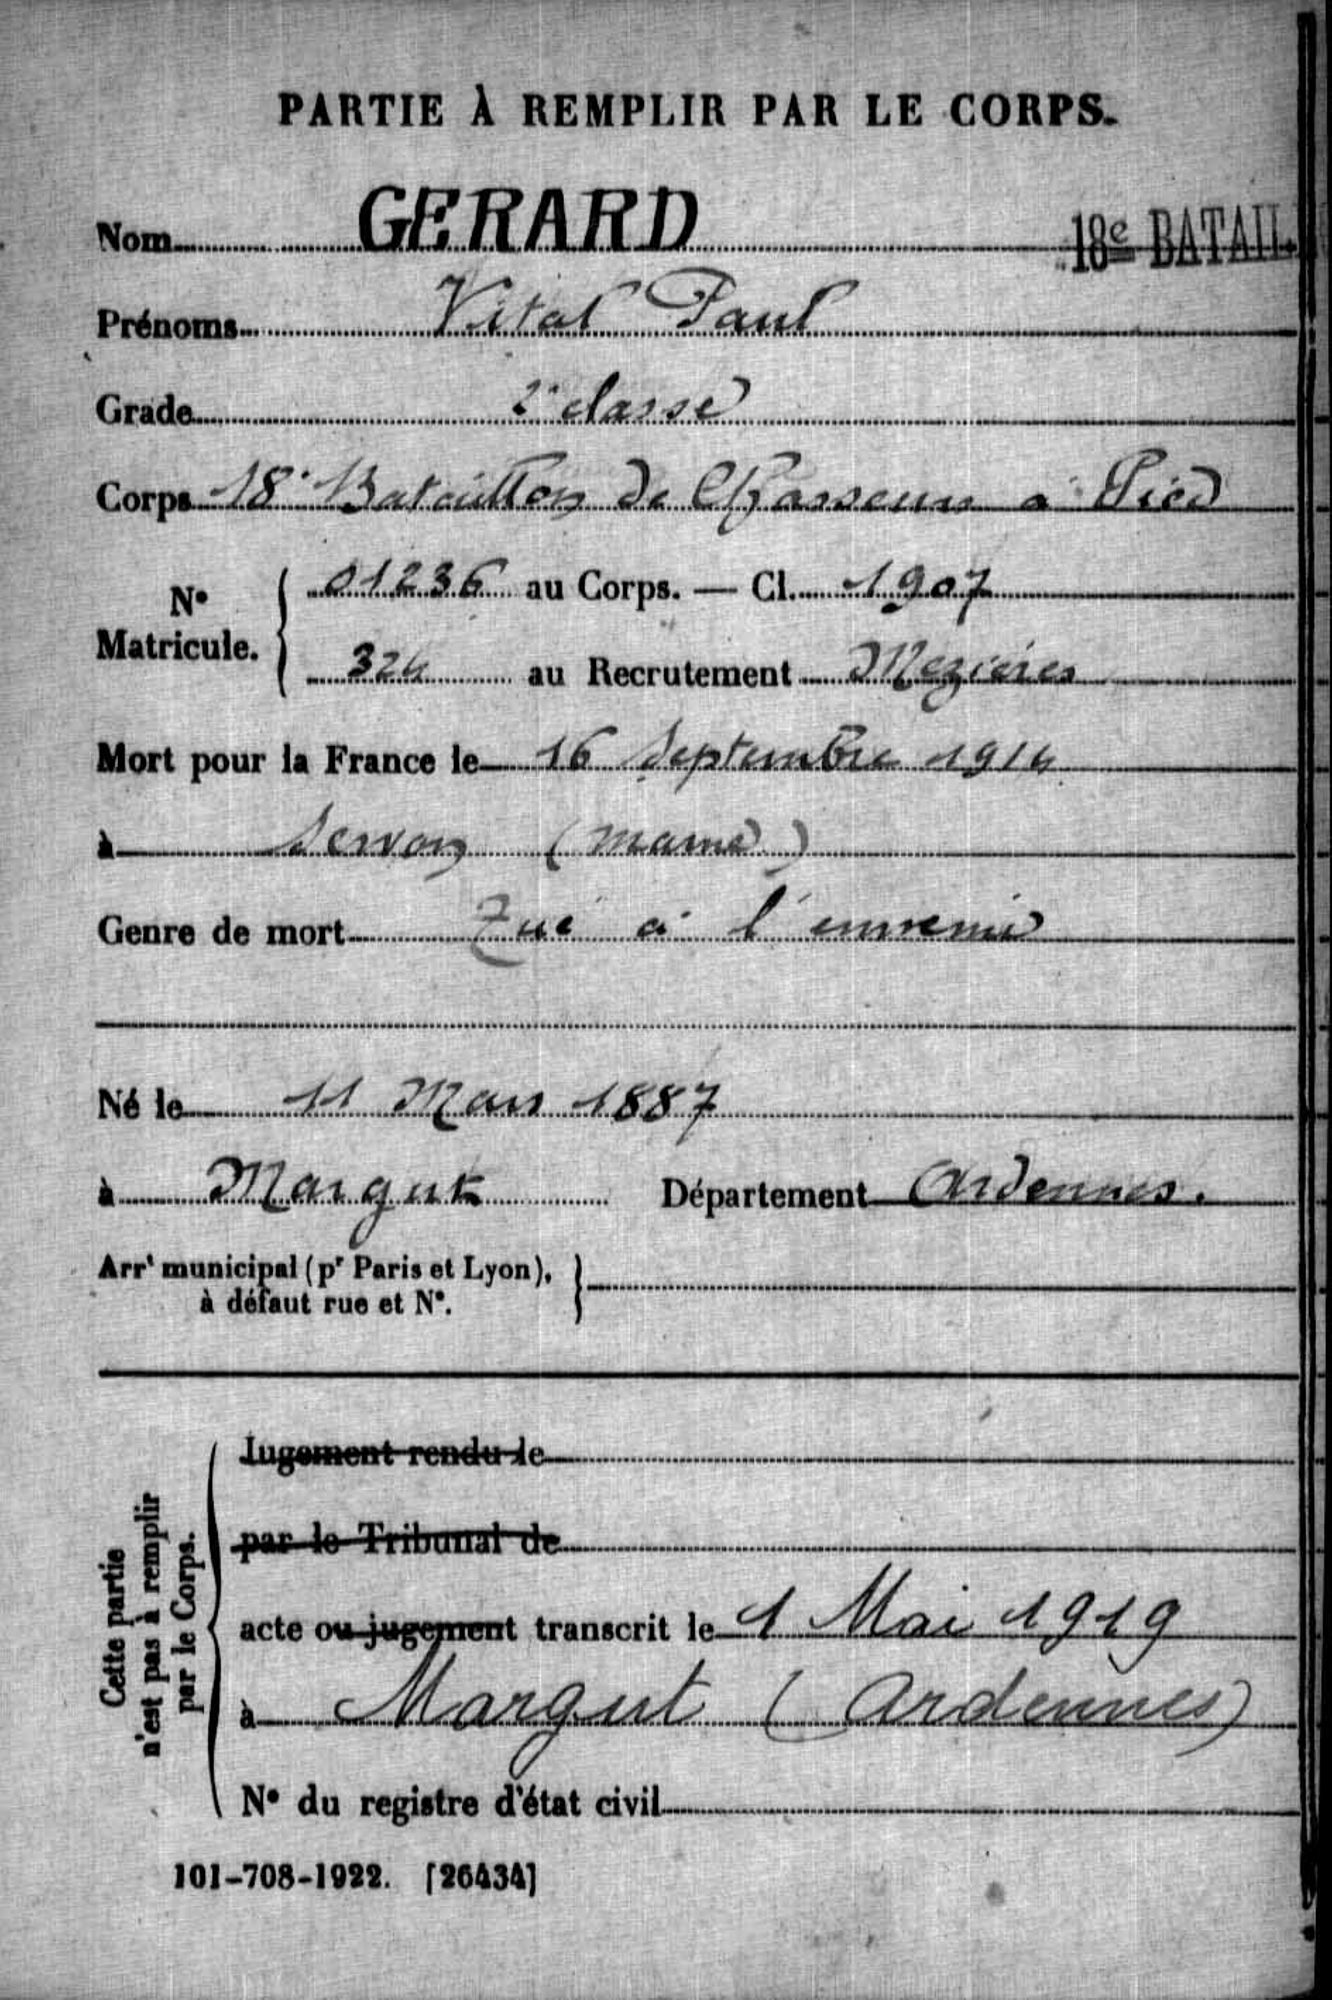 PARTIE À REMPLIR PAR LE CORPS.
Nom GERARD 18e BATAIL
Prénoms Vital Paul
Grade 2e classe
Corps 18e Bataillon de Chasseurs à Pied
N° Matricule. 01236 au Corps. — Cl. 1907
324 au Recrutement Mezières
Mort pour la France le 16 Septembre 1914
à Servon (Marne)
Genre de mort Tué à l'ennemi
Né le 11 Mars 1887
à Margut Département Ardennes.
Arrt municipal (pr Paris et Lyon),
à défaut rue et N°.
Cette partie
n'est pas à remplir
par le Corps.
Jugement rendu le
par le Tribunal de
acte ou jugement transcrit le 1 Mai 1919
à Margut (Ardennes)
N° du registre d'état civil
101-708-1922. [26434]